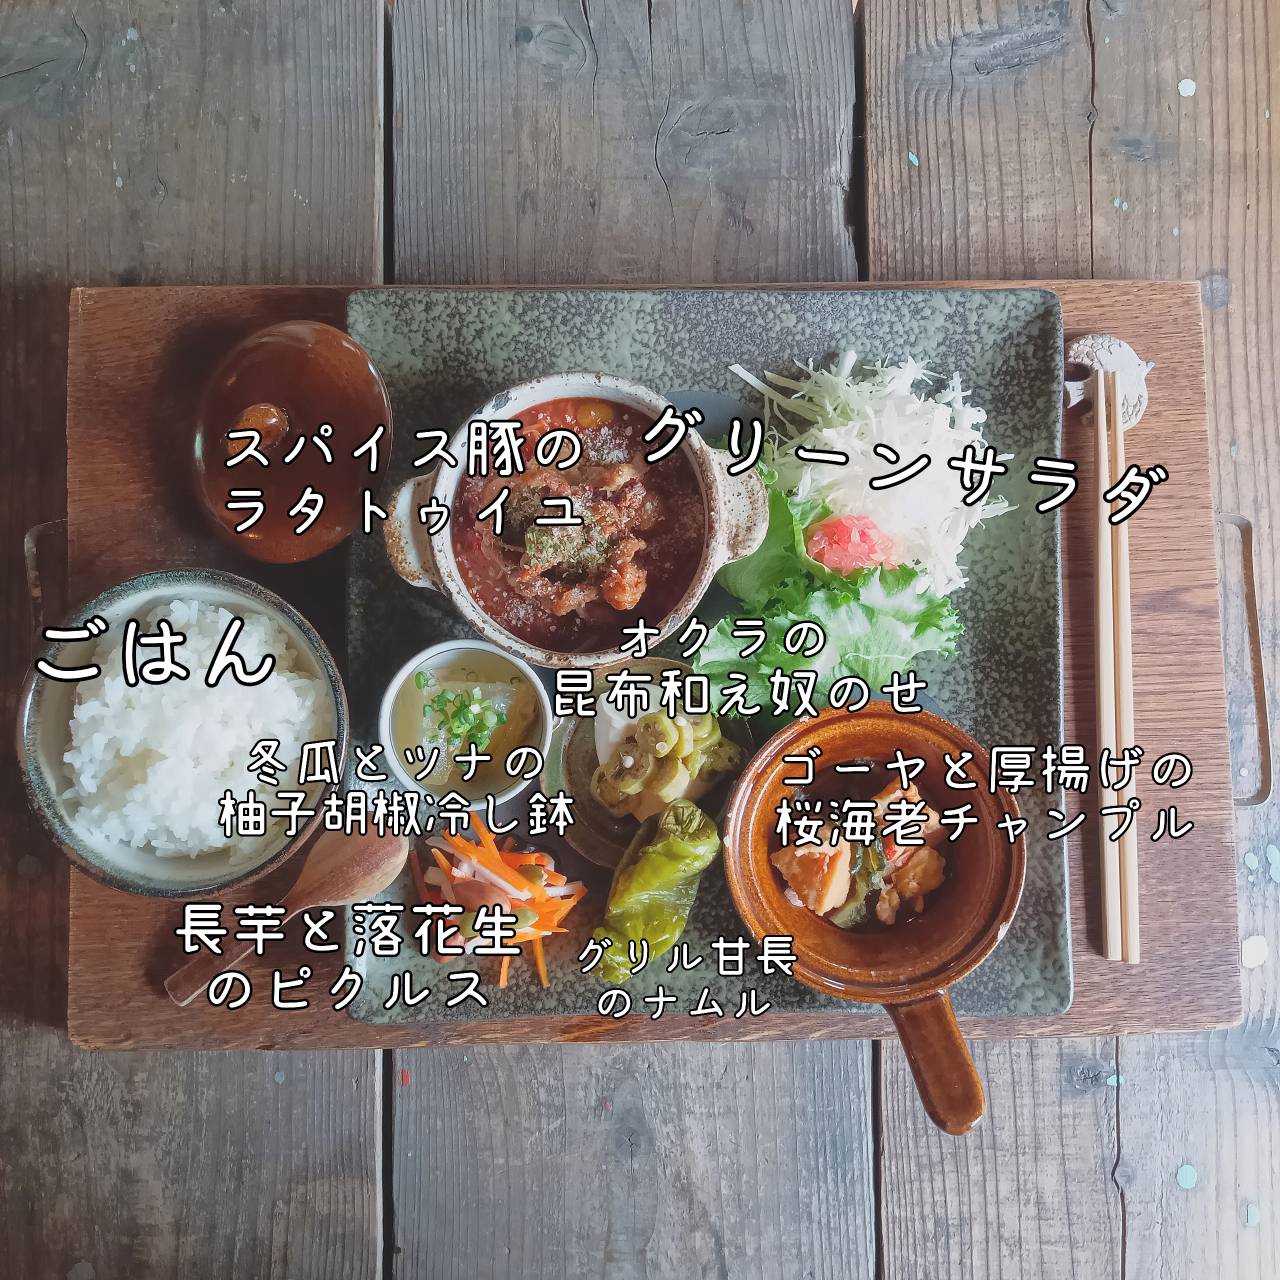 スパイス豚の
ラタトゥイユ
グリーンサラダ
ごはん
オクラの
昆布和え奴のせ
冬瓜とツナの
柚子胡椒冷し鉢
ゴーヤと厚揚げの
桜海老チャンプル
長芋と落花生
のピクルス
グリル甘長
のナムル